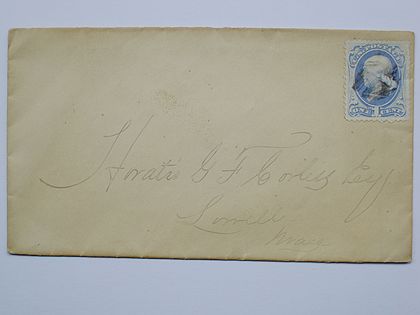 U.S. POSTAGE
ONE CENT
Horatio G F Corliss Esq
Lowell
Mass